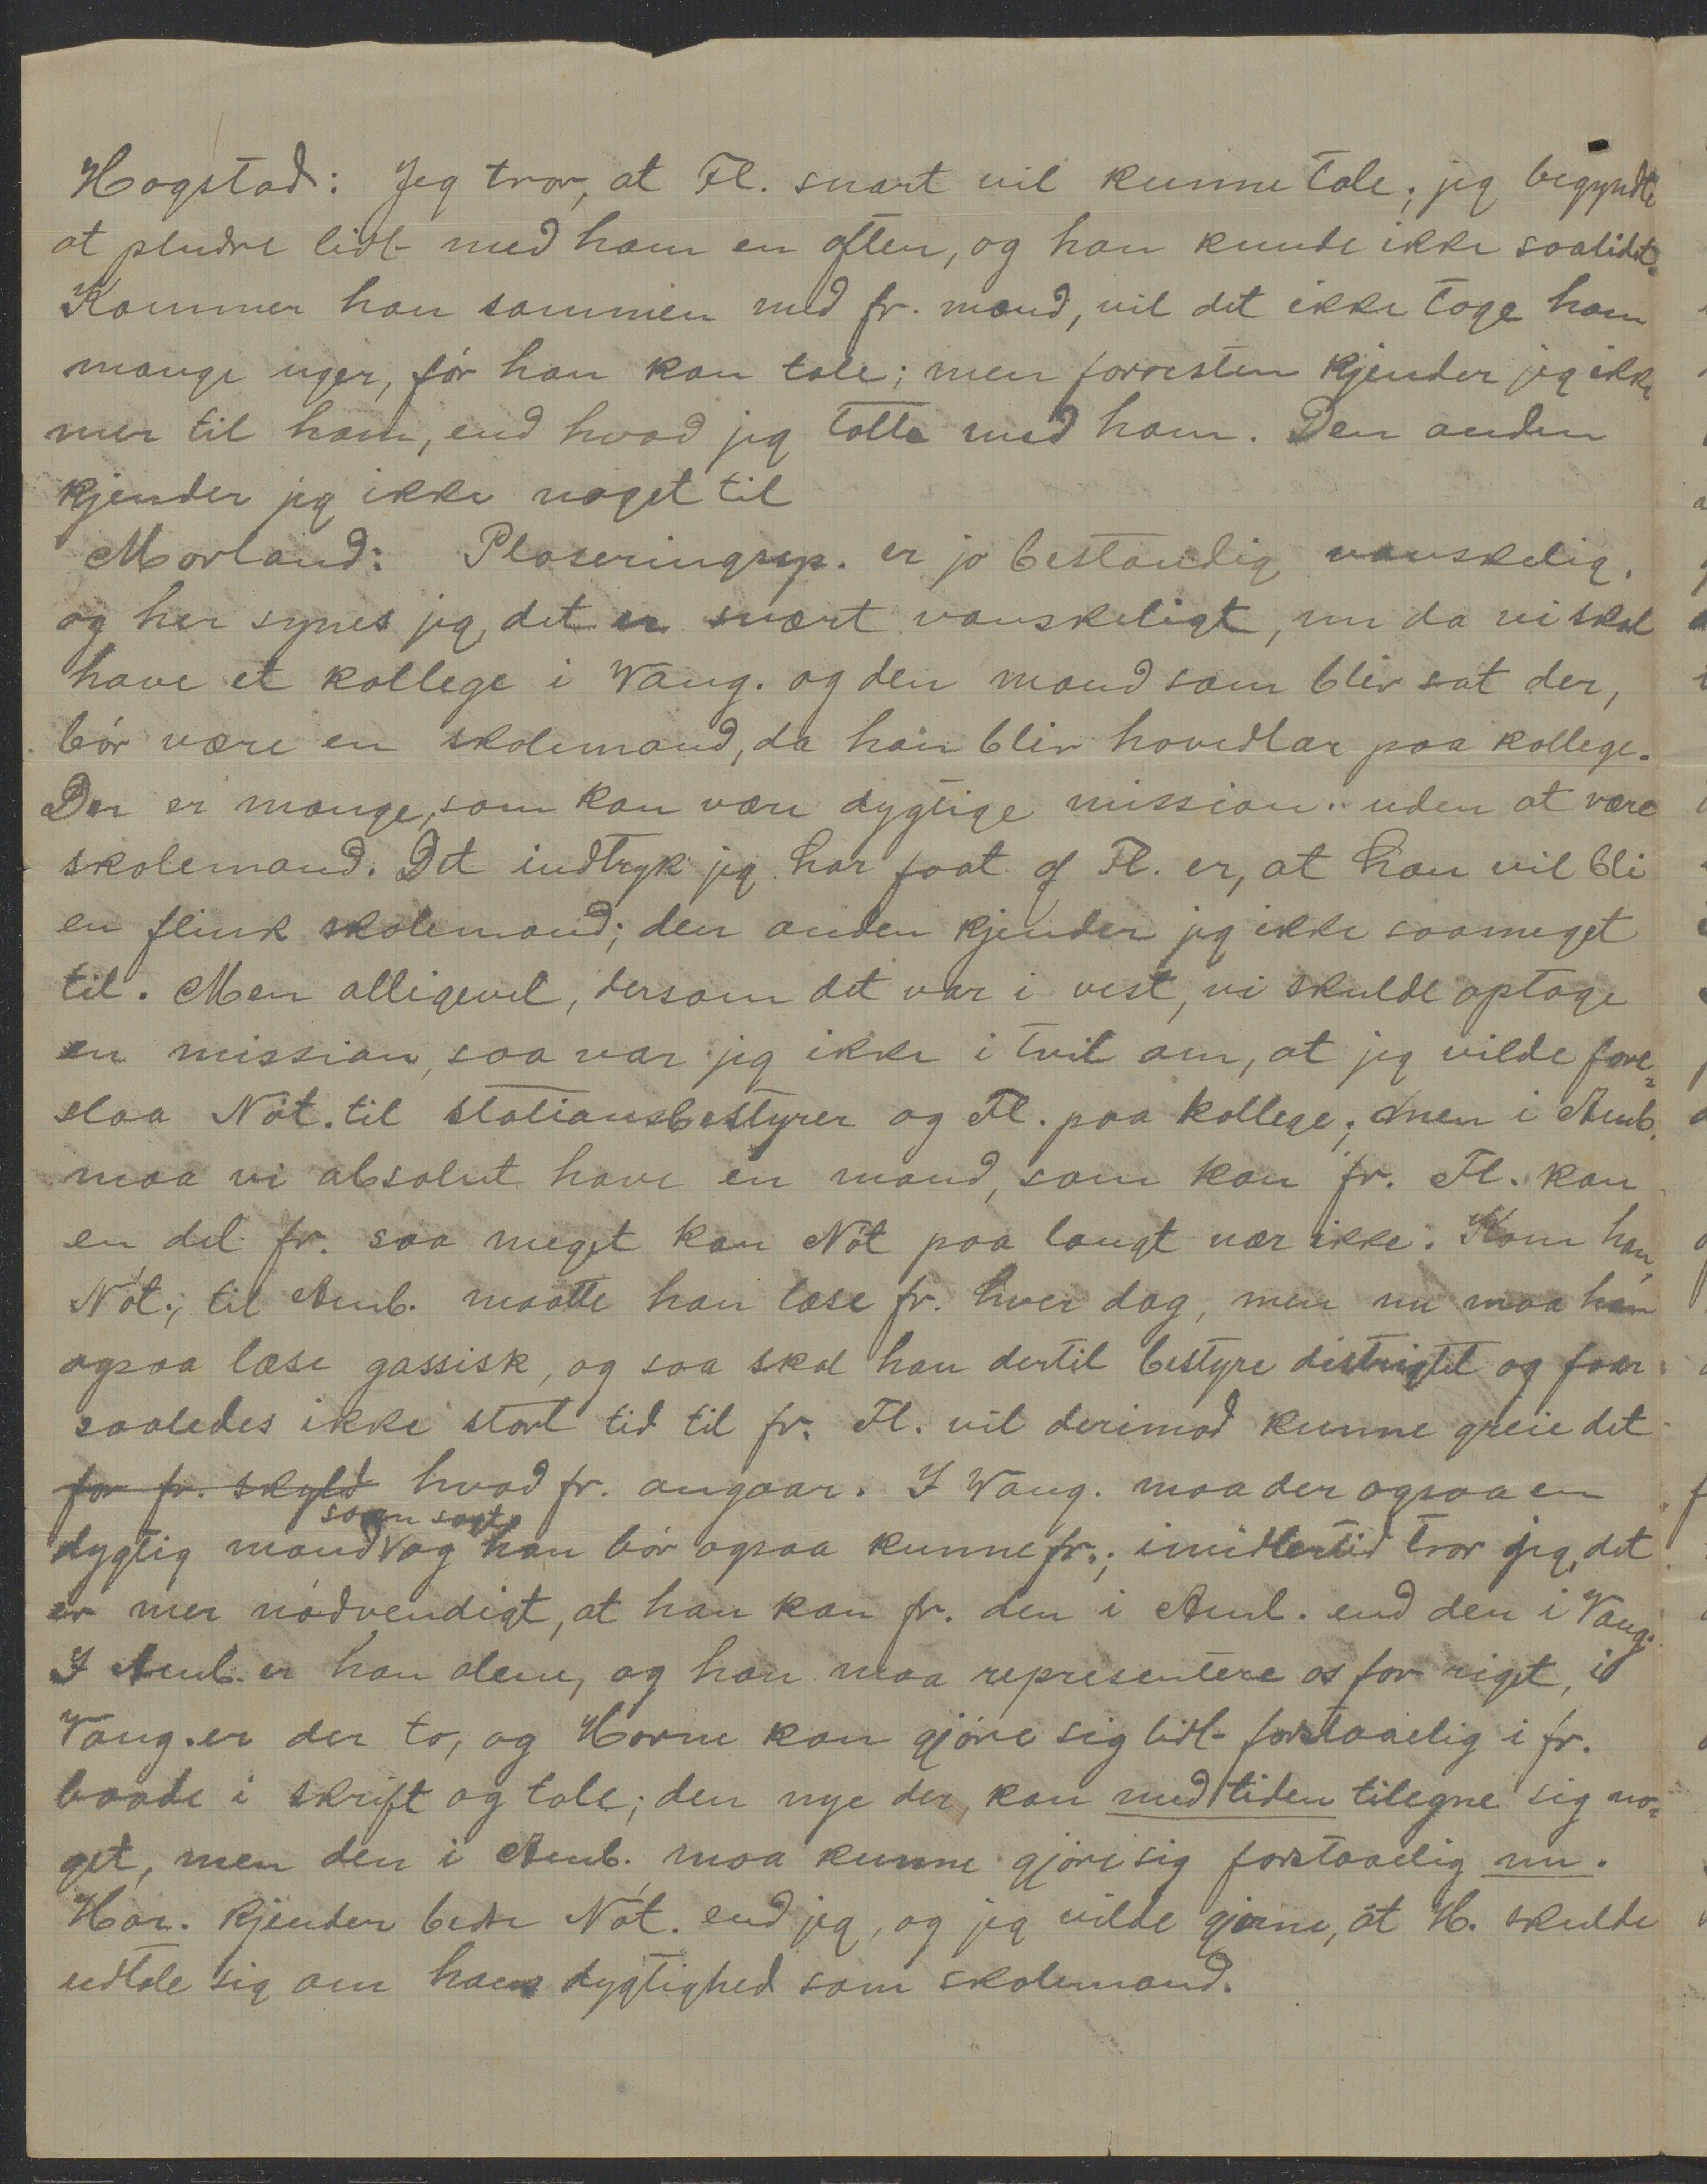 Hogstad: Jeg tror, at Fl. snart vil kunne tale; jeg begyndte
at pludre lidt med ham en aften, og han kunde ikke saalidet.
Kommer han sammen med fr. mænd, vil det ikke tage ham
mange uger, før han kan tale; men forresten kjender jeg ikke
mer til ham, end hvad jeg talte med ham. Den anden
kjender jeg ikke noget til
Morland: Plaseringssp. er jo bestandig vanskelig.
og her synes jeg, det er svært vanskeligt, nu da vi skal
have et kollege i Vang. og den mand som blir sat der,
bør være en skolemand, da han blir hovedlær paa kollege.
Der er mange, som kan være dygtige mission. uden at være
skolemand. Det indtryk jeg har faat af Fl. er, at han vil bli
en flink skolemand; den anden kjender jeg ikke saameget
til. Men alligevel, dersom det var i vest, vi skulde optage
en mission, saa var jeg ikke i tvil om, at jeg vilde fore=
slaa Nöt. til stationsbestyrer og Fl. paa kollege; men i Amb.
maa vi absolut have en mand, som kan fr. Fl. kan
en del fr. saa meget kan Nöt paa langt nær ikke. Kom han,
Nöt., til Amb. maatte han læse fr. hver dag, men nu maa han
ogsaa læse gassisk, og saa skal han dertil bestyre distrigtet og faar
saaledes ikke stort tid til fr. Fl. vil derimod kunne greie det
for fr. skyld hvad fr. angaar. I Vang. maa der ogsaa en
som sagt
dygtig mand V og han bör ogsaa kunne fr.; imidlertid tror jeg, det
er mer nödvendigt, at han kan fr. den i Amb. end den i Vang.
I Amb. er han alene, og han maa representere os for riget, i
Vang. er der to, og Horne kan gjöre sig lidt forstaaelig i fr.
baade i skrift og tale; den nye der, kan med tiden tilegne sig no=
get, men den i Amb. maa kunne gjöre sig forstaaelig nu.
Hor. kjender bedre Nöt. end jeg, og jeg vilde gjerne, at H. skulde
udtale sig om hans dygtighed som skolemand.